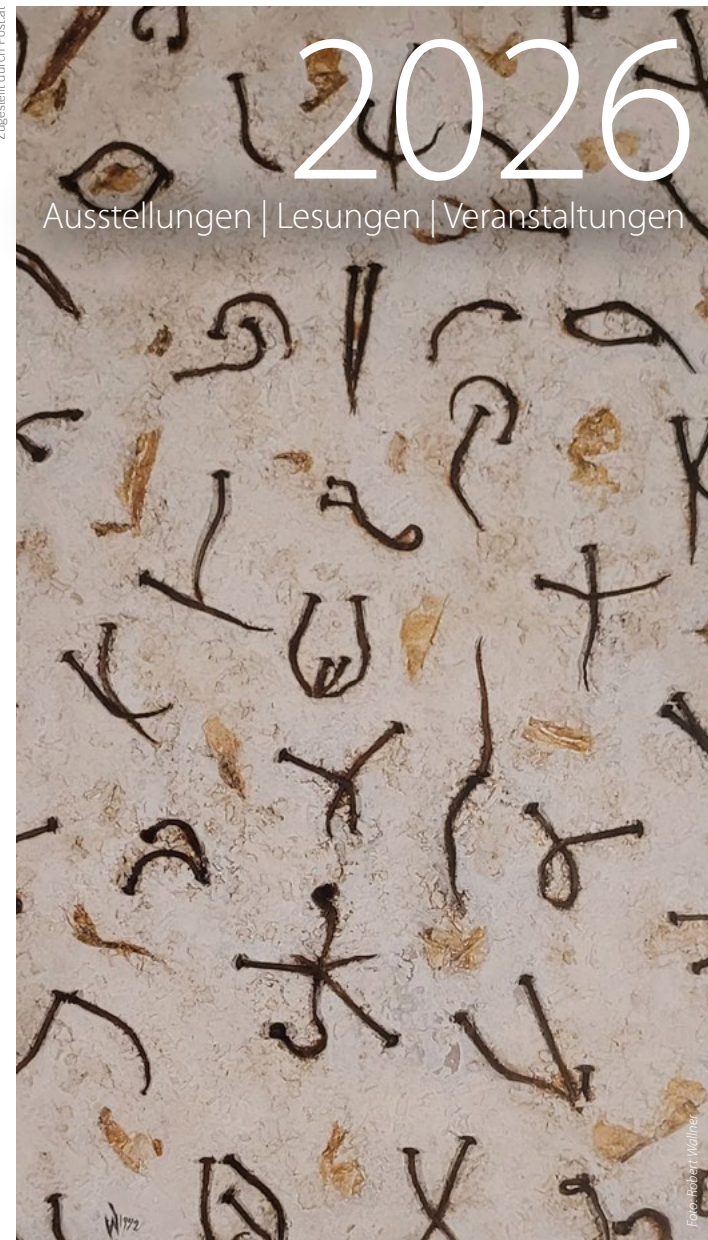 Zugestellt durch Post.at
2026
Ausstellungen | Lesungen | Veranstaltungen
Foto: Robert Wallner
W 1992